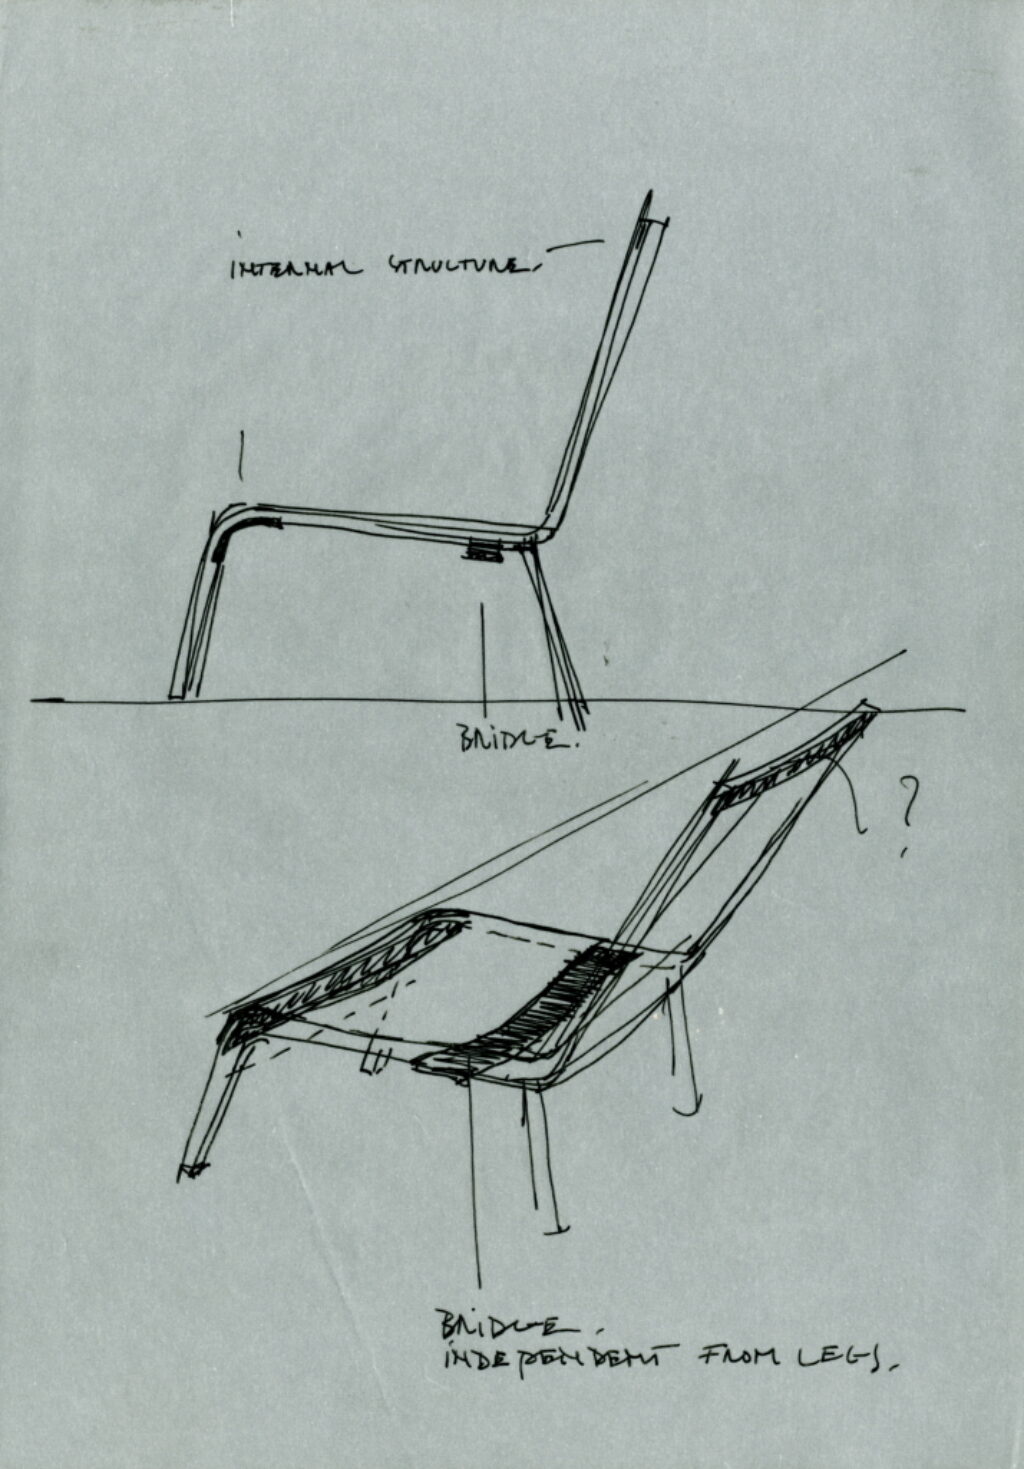 INTERNAL STRUCTURE.
BRIDGE.
?
BRIDGE.
INDEPENDENT FROM LEGS.